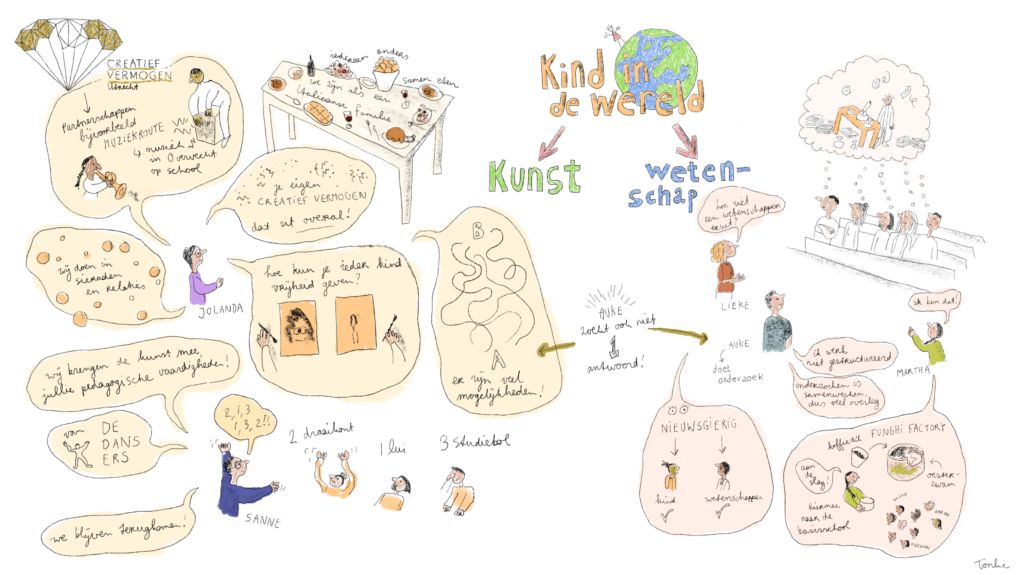 CREATIEF
VERMOGEN
Utrecht
Partnerschappen
bijvoorbeeld
MUZIEKROUTE
↳ muziek
in Overvecht
op school
iedereen anders
samen eten
we zijn als een
Italiaanse familie
je eigen
CREATIEF VERMOGEN
dat zit overal!
wij doen in
sieraden
en relaties
JOLANDA
hoe kun je ieder kind
vrijheid geven?
B
A
er zijn veel
mogelijkheden!
wij brengen de kunst mee,
jullie pedagogische vaardigheden!
van DE
DANS
ERS
2, 1, 3
1, 3, 2!!
SANNE
2 draaikont
1 lui
3 studiebol
we blijven terugkomen!
Kind in
de wereld
Kunst
weten-
schap
AUKE
zocht ook niet
1
antwoord!
hoe ziet
een wetenschapper
eruit?
LIEKE
AUKE
doet
onderzoek
ik werk
niet gestructureerd
onderzoeken is
samenwerken,
dus veel overleg
ik ben dat!
MARTHA
NIEUWSGIERIG
kind
wetenschapper
FUNGHI FACTORY
koffiedik
oester-
zwam
aan
de
slag!
hiermee
naar de
basisschool